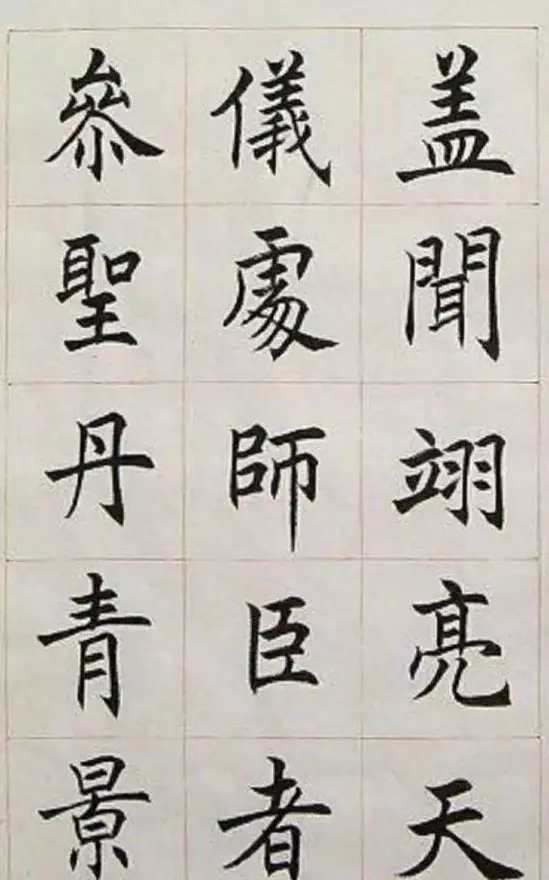 盖聞翊亮天
儀處師臣者
參聖丹青景